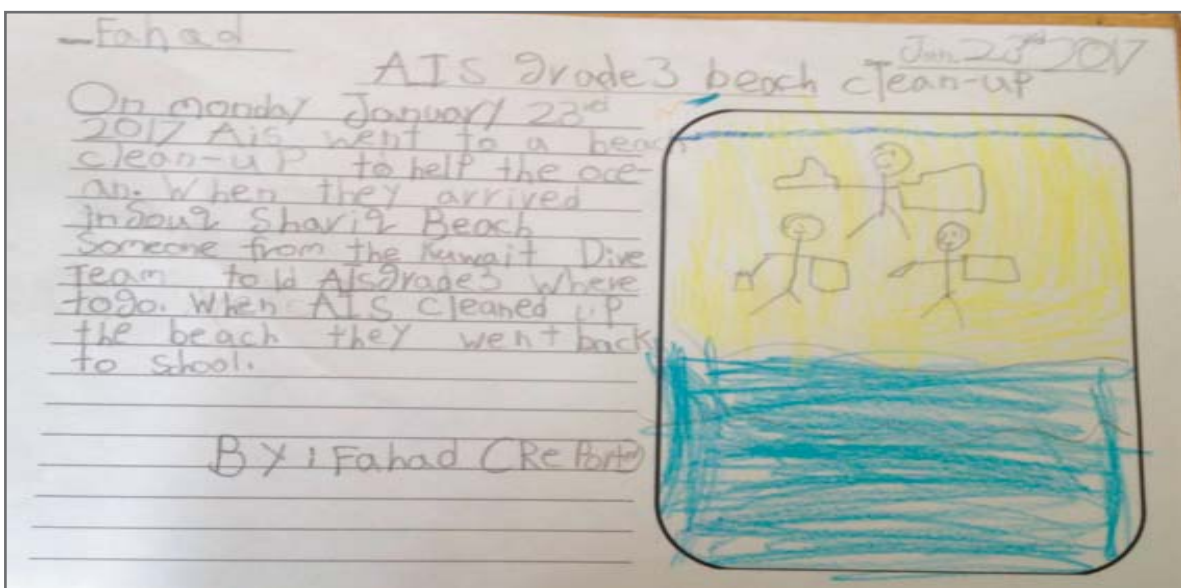 Fahad
Jan. 23rd 2017
AIS grade3 beach clean-up
On monday January 23rd
2017 Ais went to a beach
clean-up to help the oce-
an. When they arrived
in Souq Shariq Beach
Someone from the Kuwait Dive
Team told AIsgrade3 where
togo. When AIS cleaned up
the beach they went back
to school.
By: Fahad (Reporter)